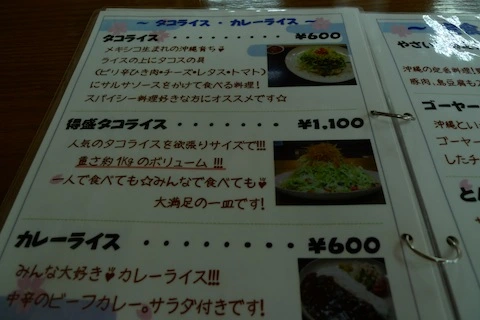 ～ タコライス・カレーライス ～
タコライス ・・・・・・・・ ¥600
メキシコ生まれの沖縄育ち♥
ライスの上にタコスの具
(ピリ辛ひき肉・チーズ・レタス・トマト)
にサルサソースをかけて食べる料理!
スパイシー料理好きな方にオススメです☆
得盛タコライス ・・・・・・ ¥1,100
人気のタコライスを欲張りサイズで!!!
重さ約1Kgのボリューム!!!
一人で食べても☆みんなで食べても♥
大満足の一皿です!
カレーライス ・・・・・・・・ ¥600
みんな大好き♥カレーライス!!!
中辛のビーフカレー。サラダ付きです!
やさい
沖縄の定
豚肉、島豆腐も
ゴーヤー
沖縄とい
ゴーヤー
したチ
とん